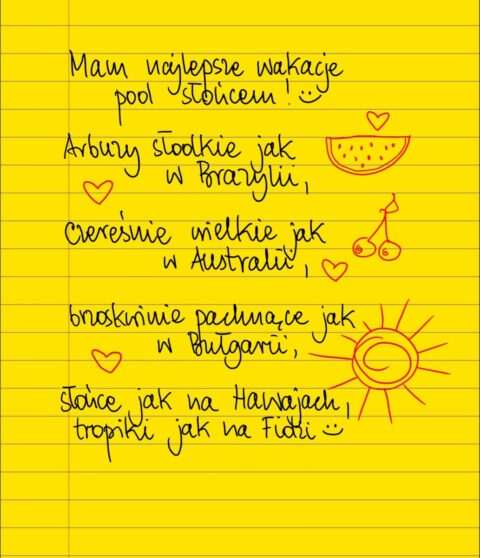 Mam najlepsze wakacje
pod słońcem! :)
Arbuzy słodkie jak
w Brazylii,
Czereśnie wielkie jak
w Australii,
brzoskwinie pachnące jak
w Bułgarii,
słońce jak na Hawajach,
tropiki jak na Fidżi :)